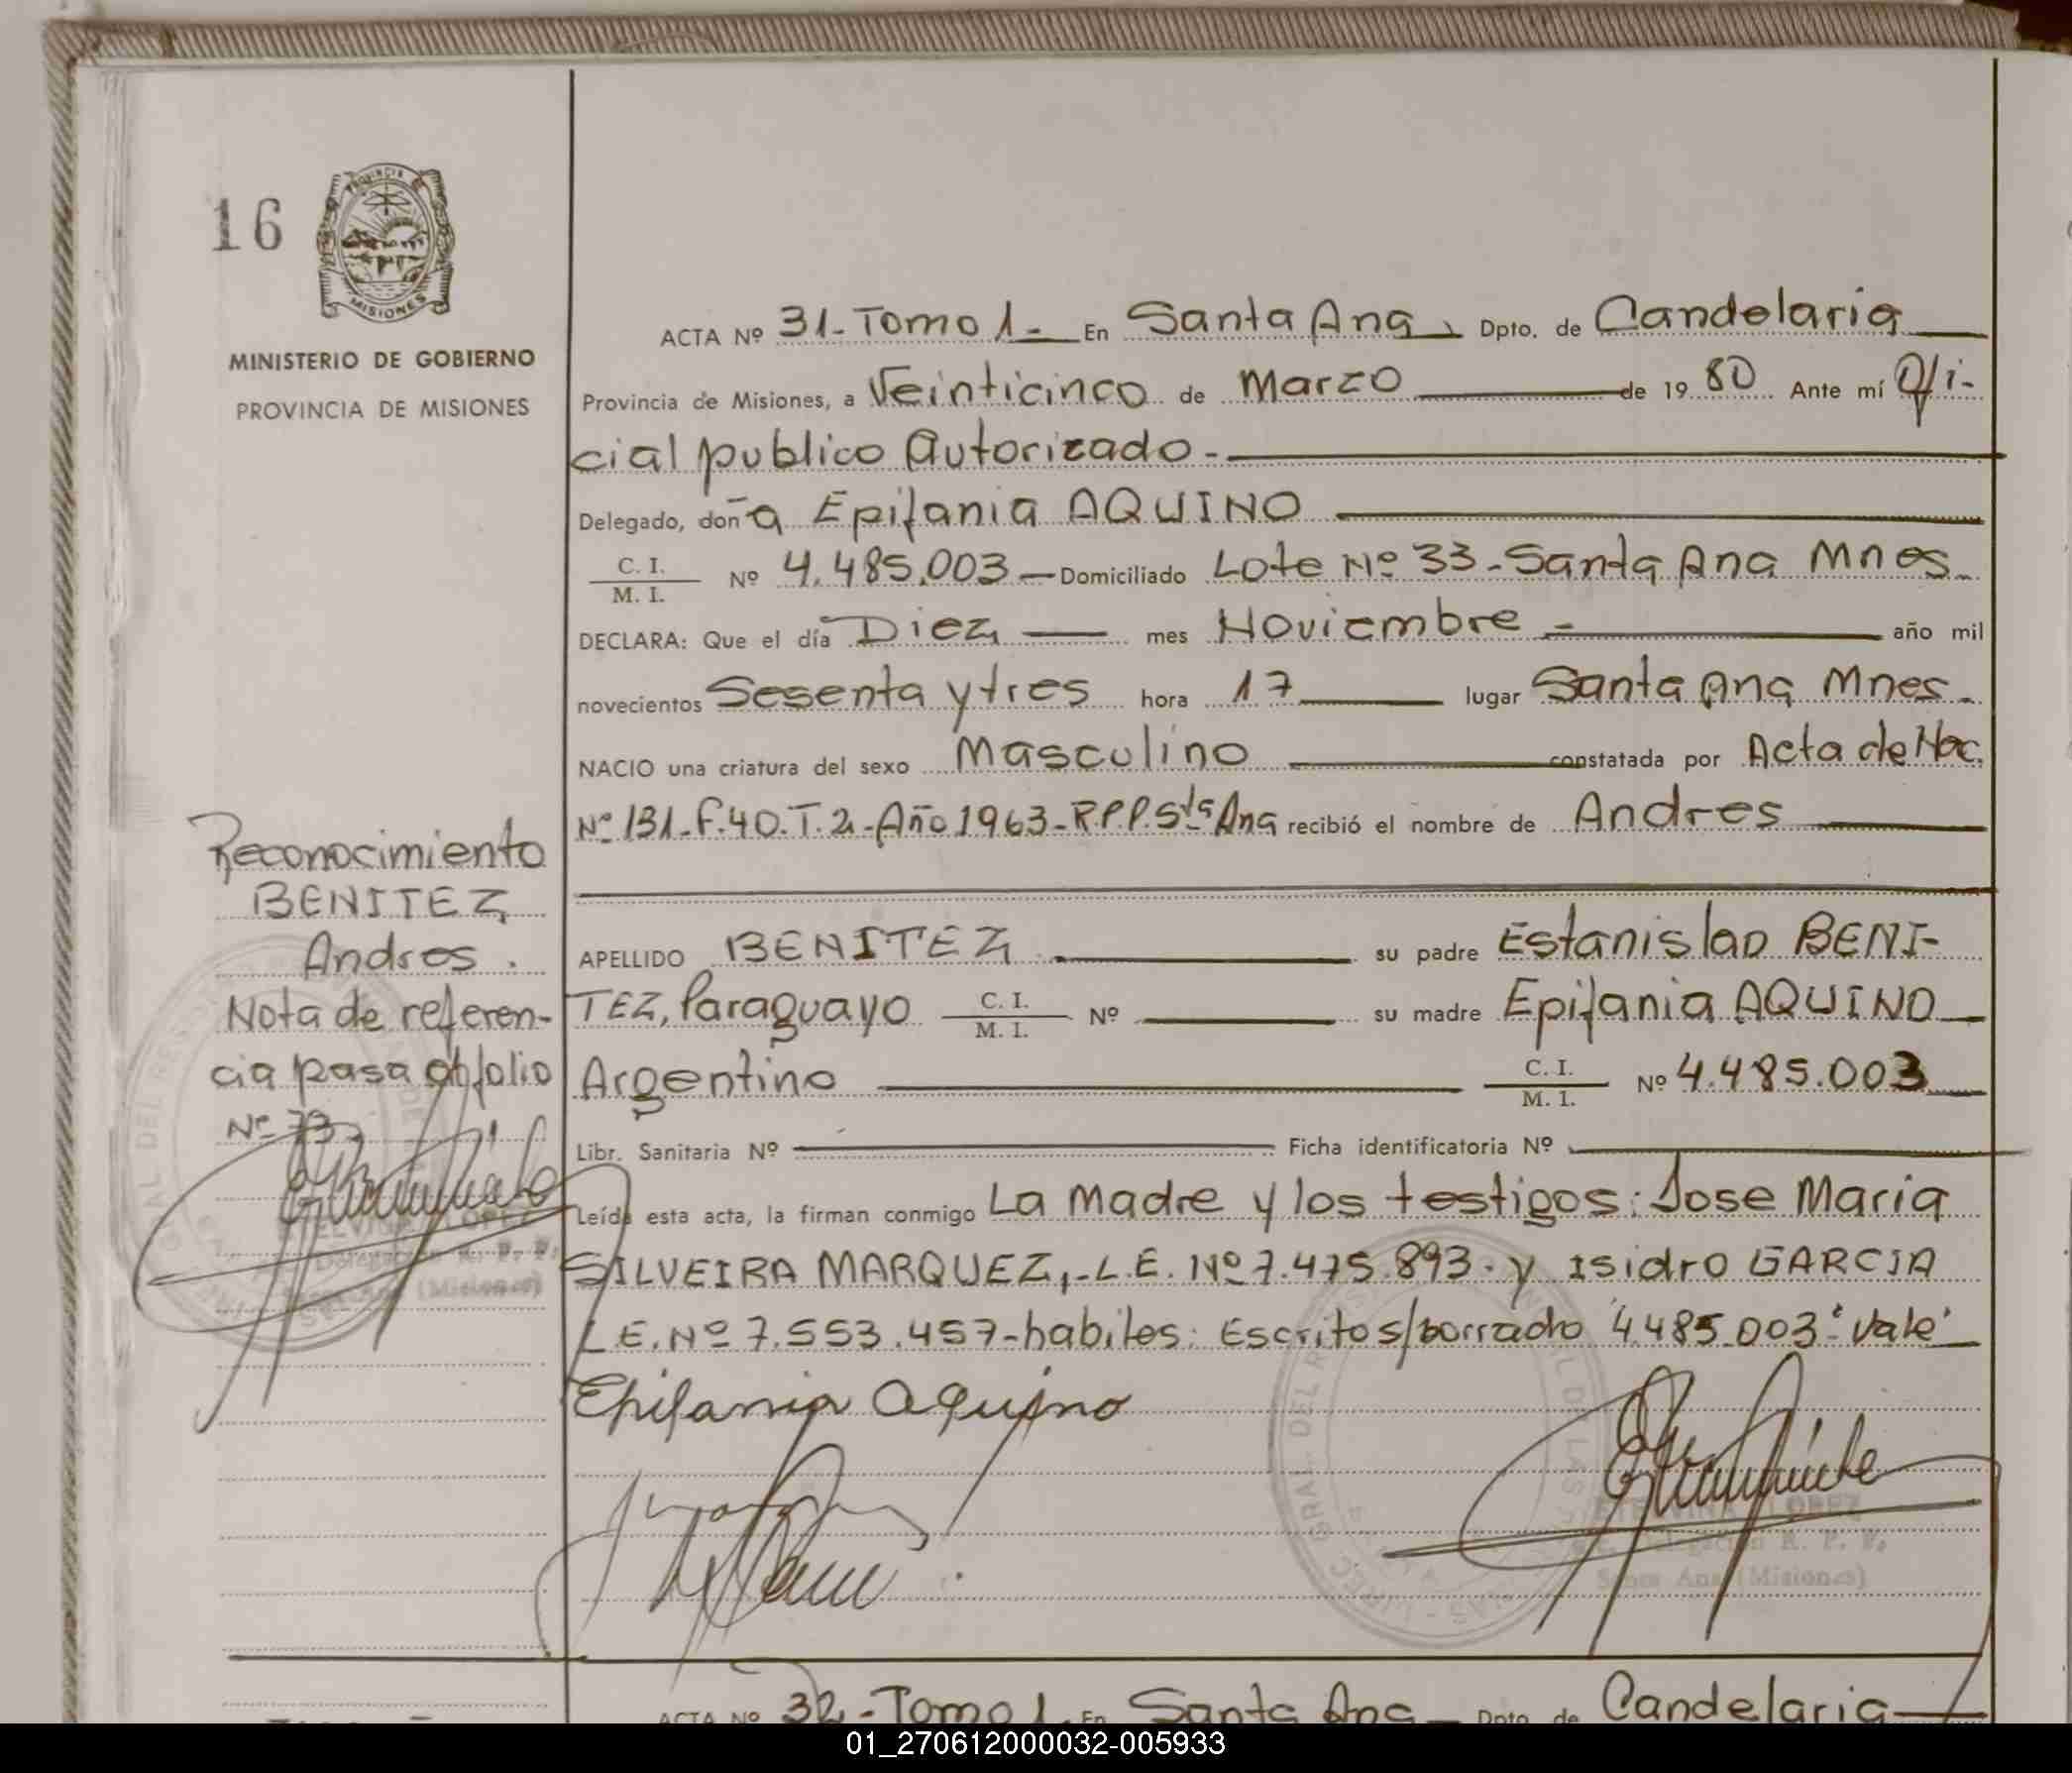 16
PROVINCIA DE
MISIONES
MINISTERIO DE GOBIERNO
PROVINCIA DE MISIONES
ACTA Nº 31-Tomo 1- En Santa Ana, Dpto. de Candelaria
Provincia de Misiones, a Veinticinco de Marzo de 1980 Ante mí Ofi-
cial publico Autorizado-
Delegado, doña Epifania AQUINO
C. I.
M. I.
Nº 4.485.003 — Domiciliado Lote Nº 33-Santa Ana Mnes-
DECLARA: Que el día Diez mes Noviembre - año mil
novecientos Sesenta y tres hora 17 lugar Santa Ana Mnes-
NACIO una criatura del sexo Masculino constatada por Acta de Nac.
Nº 131-F.40.T.2-Año 1963-R.P.P. Sta Ana recibió el nombre de Andres
APELLIDO BENITEZ su padre Estanislao BENI-
TEZ, Paraguayo C. I. M. I. Nº su madre Epifania AQUINO
Argentino C. I. M. I. Nº 4.485.003
Libr. Sanitaria Nº Ficha identificatoria Nº
Leída esta acta, la firman conmigo La Madre y los testigos: Jose Maria
SILVEIRA MARQUEZ,-L.E. Nº 7.475.893. y Isidro GARCIA
L.E. Nº 7.553.457-habiles: Escrito s/borrado "4.485.003" Vale
Epifania Aquino
Reconocimiento
BENITEZ
Andres.
Nota de referen-
cia pasa al folio
Nº 73
ETELVINA LOPEZ
Delegación R. P. P.
Santa Ana (Misiones)
ETELVINA LOPEZ
Delegación R. P. P.
Santa Ana (Misiones)
ACTA Nº 32-Tomo 1 En Santa Ana Dpto. de Candelaria
01_270612000032-005933